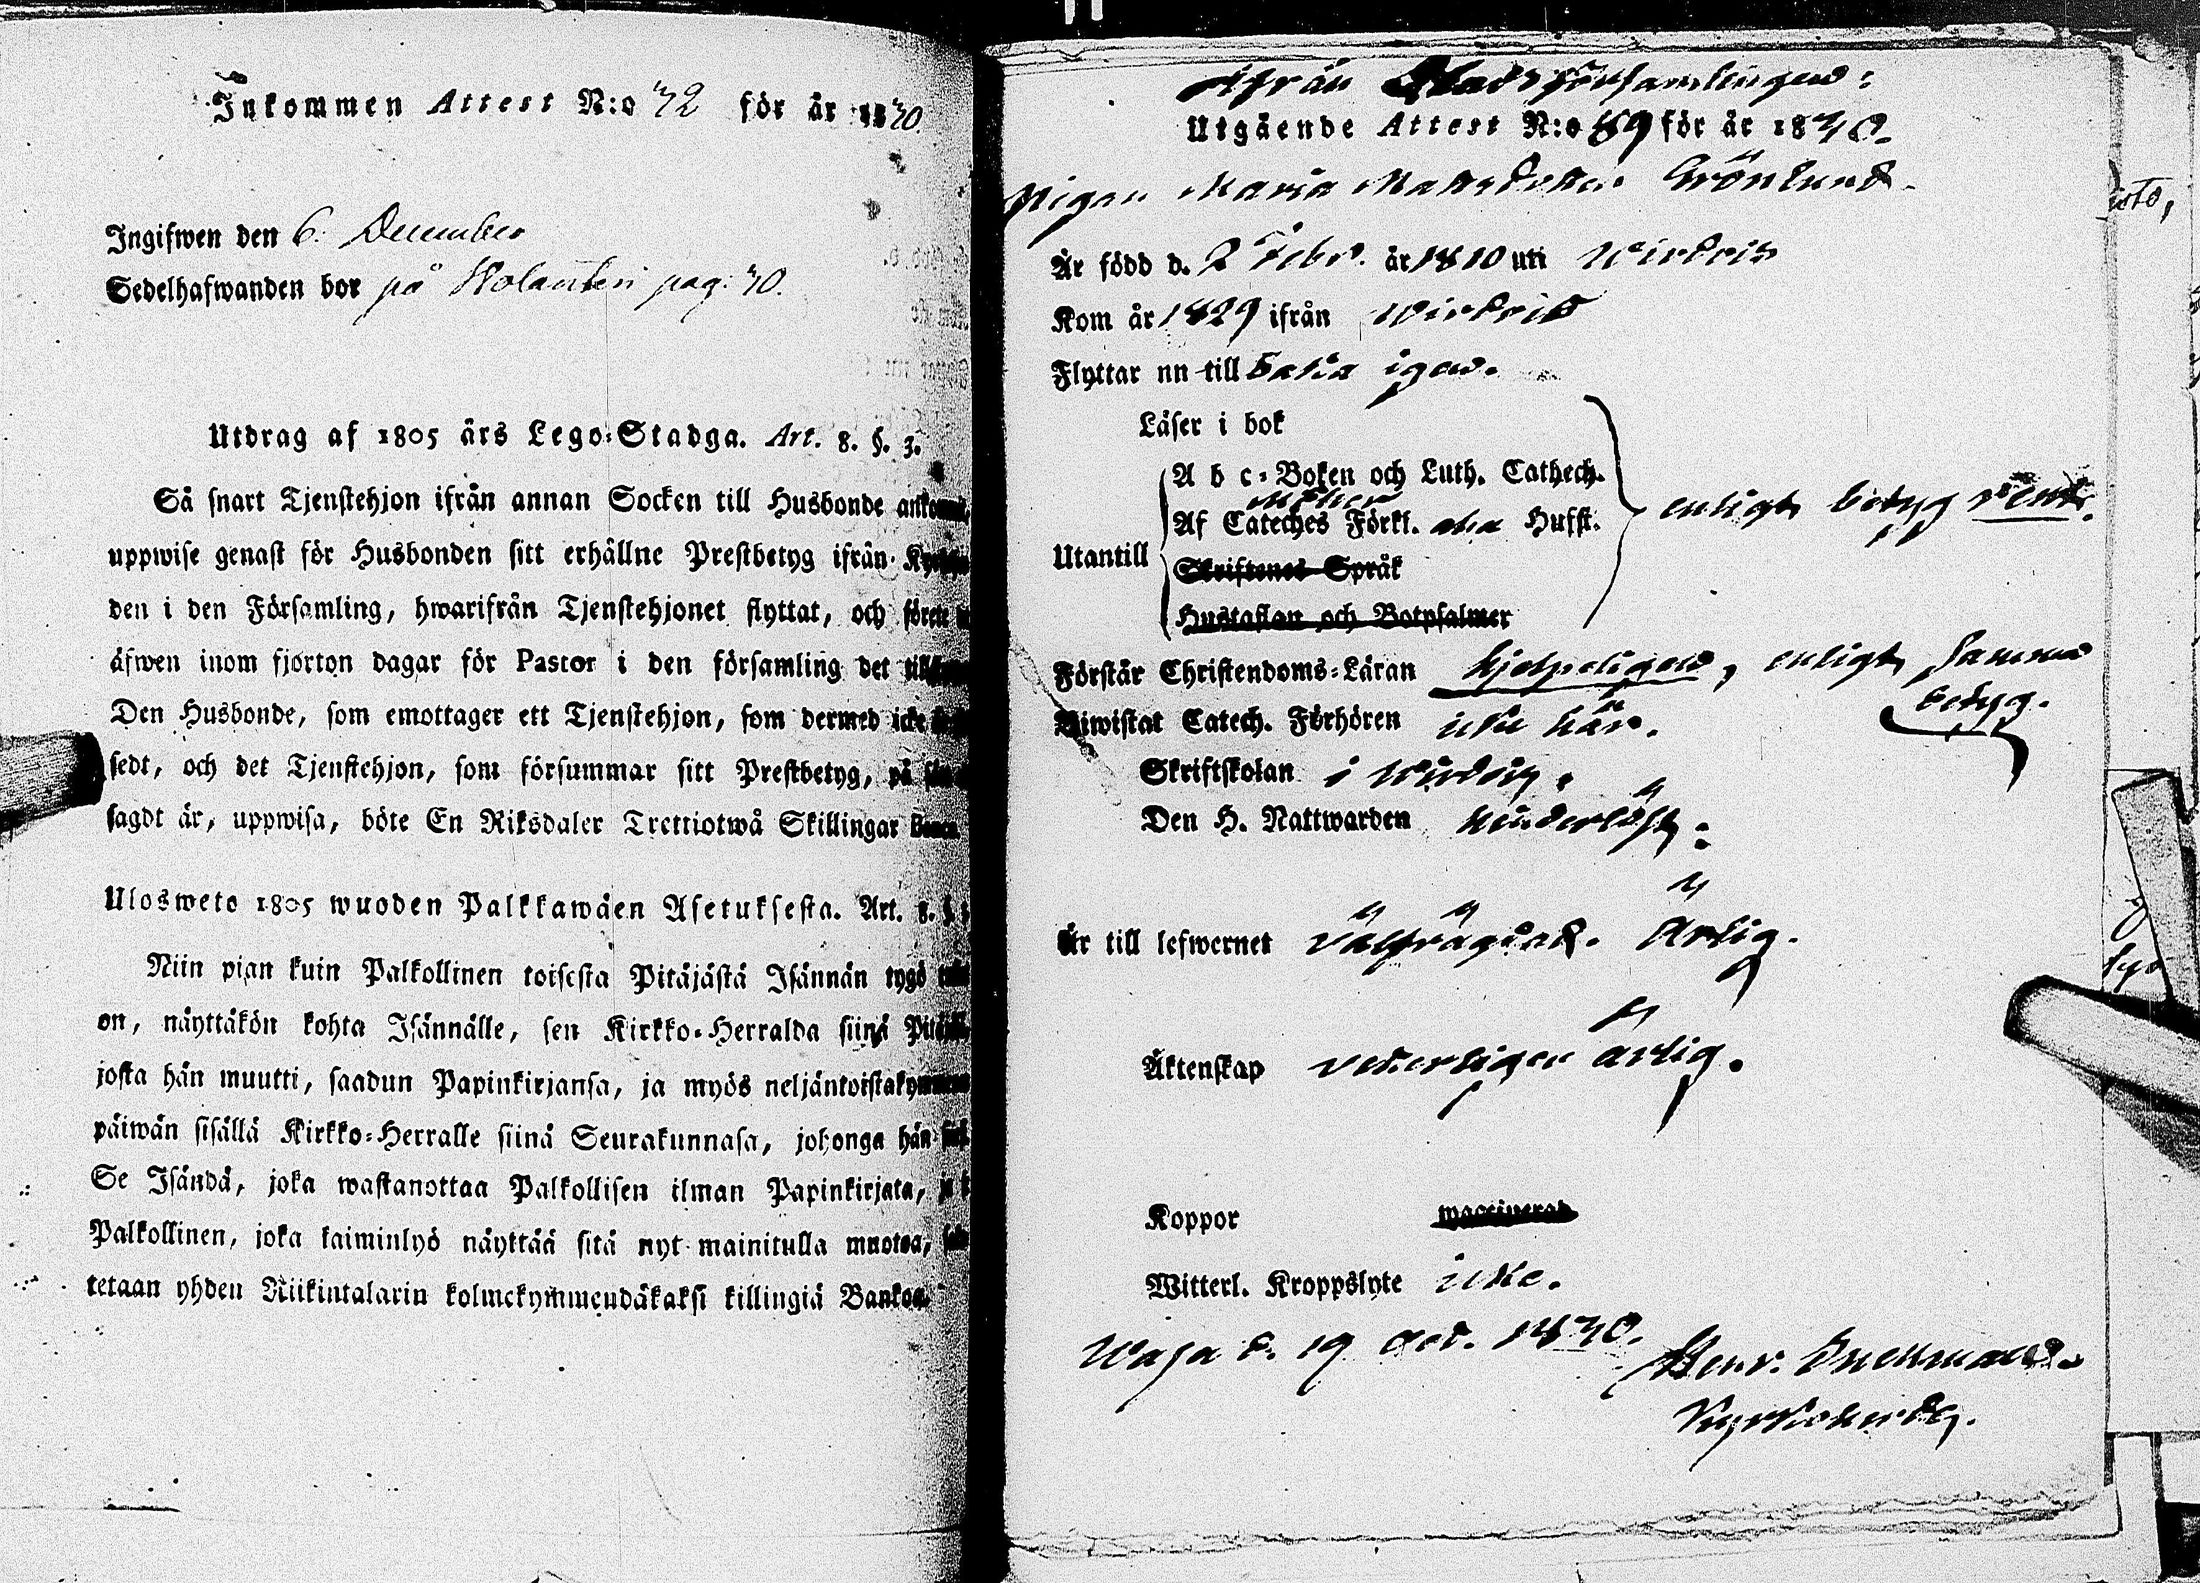 Inkommen Attest N:o 72 för år 1830.
Ingifwen den 6. December
Sedelhafwanden bor på pag: 70.
Utdrag af 1805 års Lego-Stadga. Art. 8. §. 3.
Så snart Tjenstehjon ifrån annan Socken till Husbonde
uppwise genast för Husbonden sitt erhållne Prestbetyg ifrån
den i den Församling, hwarifrån Tjenstehjonet flyttat, och
äfwen inom fjorton dagar för Pastor i den församling det
Den Husbonde, som emottager ett Tjenstehjon, som dermed icke
sedt, och det Tjenstehjon, som försummar sitt Prestbetyg, på
sagdt är, uppwisa, böte En Riksdaler Trettiotwå Skillingar
Ulosweto 1805 wuoden Palkkawäen Asetuksesta. Art. 8. §
Niin pian kuin Palkollinen toisesta Pitäjästä Isännän tygö
on, näyttäkön kohta Isännälle, sen Kirkko-Herralda siinä
josta hän muutti, saadun Papinkirjansa, ja myös
päiwän sisällä Kirkko-Herralle siinä Seurakunnasa, johonga hän
Se Isändä, joka wastanottaa Palkollisen ilman Papinkirjata,
Palkollinen, joka laiminlyö näyttää sitä nyt mainitulla muotoa,
tetaan yhden Riikintalarin kolmekymmendäkaksi killingiä Bankoa.
Ifrån Stadsförsamlingen:
Utgående Attest N:o 89 för år 1830.
Pigan Maria Mattsdotter Grönlund.
Är född d. 2 Febr. år 1810 uti Wirdois
Kom år 1829 ifrån Wirdois
Flyttar nu till baka igen.
Läser i bok
A b c-Boken och Luth. Cathech.
Af Cateches Förkl. Husst.
enligt betyg rent.
Utantill
Skriftenes Språk
Hustaflan och Botpsalmer
Förstår Christendoms-Läran hjelpeligen, enligt samma
betyg.
Biwistat Catech. Förhören icke här.
Skriftskolan i
Den H. Nattwarden
Är till lefwernet välfrägdad. Ärlig.
Äktenskap vederligen ärlig.
Koppor waccinerad
Witterl. Kroppslyte icke.
Wasa d. 19 Oct. 1830.
Henr.
Kyrkoherde.